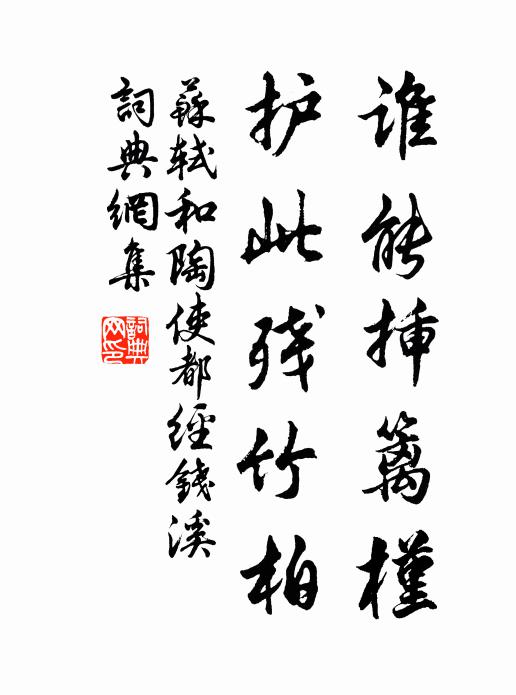 谁能插篱槿
护此残竹柏
蘇軾和陶使都經錢溪
詞典網集
詞典网印